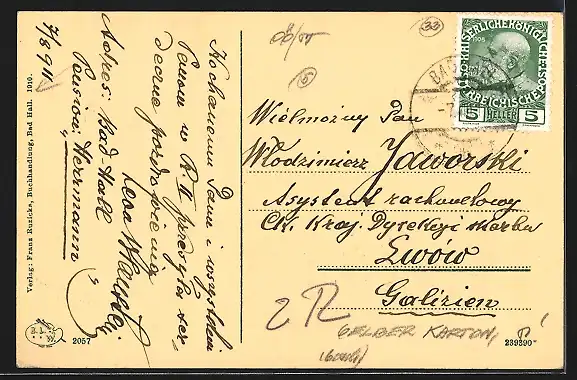 7/8 911
Kochanemu Panu i wszystkim
Panom w R. II przesyła ser-
deczne pozdrowienia
Adres: Bad Hall
Pension: „Herrmann"
Verlag: Franz Ruzicka, Buchhandlung, Bad Hall. 1910.
2057
33
5
KAISERLICHE KÖNIGLICHE
ÖSTERREICHISCHE POST
1908
5 HELLER 5
BAD HALL
Wielmożny Pan
Włodzimierz Jaworski
Asystent rachunkowy
Ck. Kraj. Dyrekcyi skarbu
Lwów
Galizien
GELBER KARTON,
239390